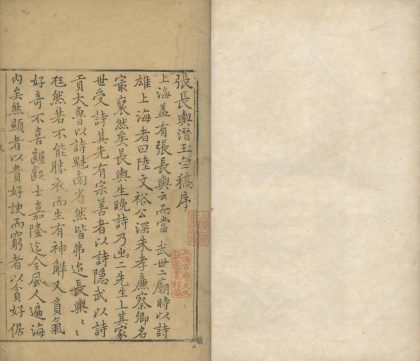 張長輿潛玉空稿序
上海盖有張長輿云而當 武世二廟時以詩
雄上海者曰陸文裕公深朱孝廉察卿名
寂裒然矣長輿生晚詩乃出二先生上其家
世受詩其先有宗善者以詩隱武以詩
貢大魯以詩魁南省然皆弗造長輿長輿
尩然若不能勝衣而生有神解又負氣
好奇不喜齷齪士嘉隆迄今風人遍海
內矣然顯者以貴好諛而窮者以貧好倨